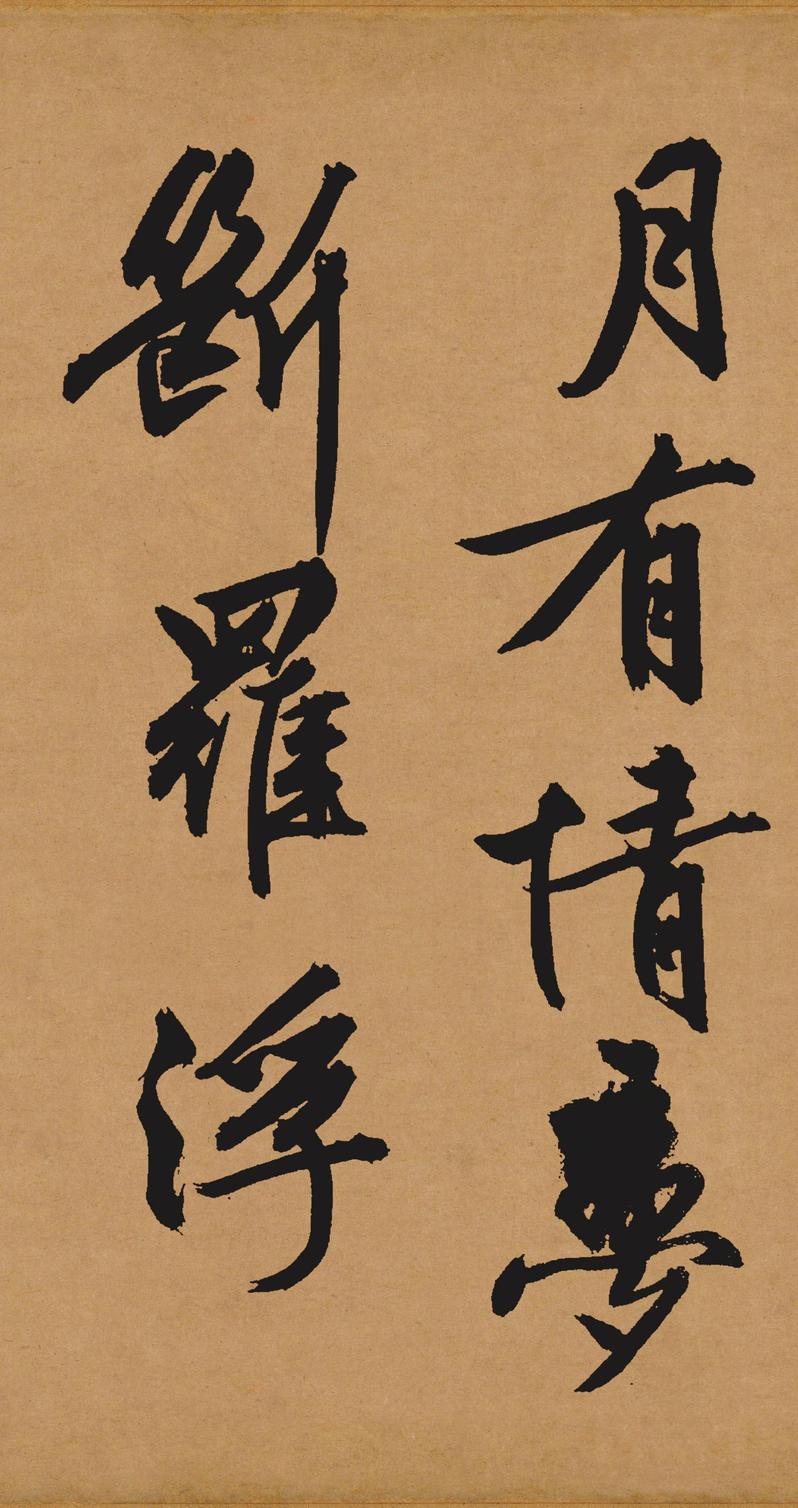 月有情夢
斷羅浮